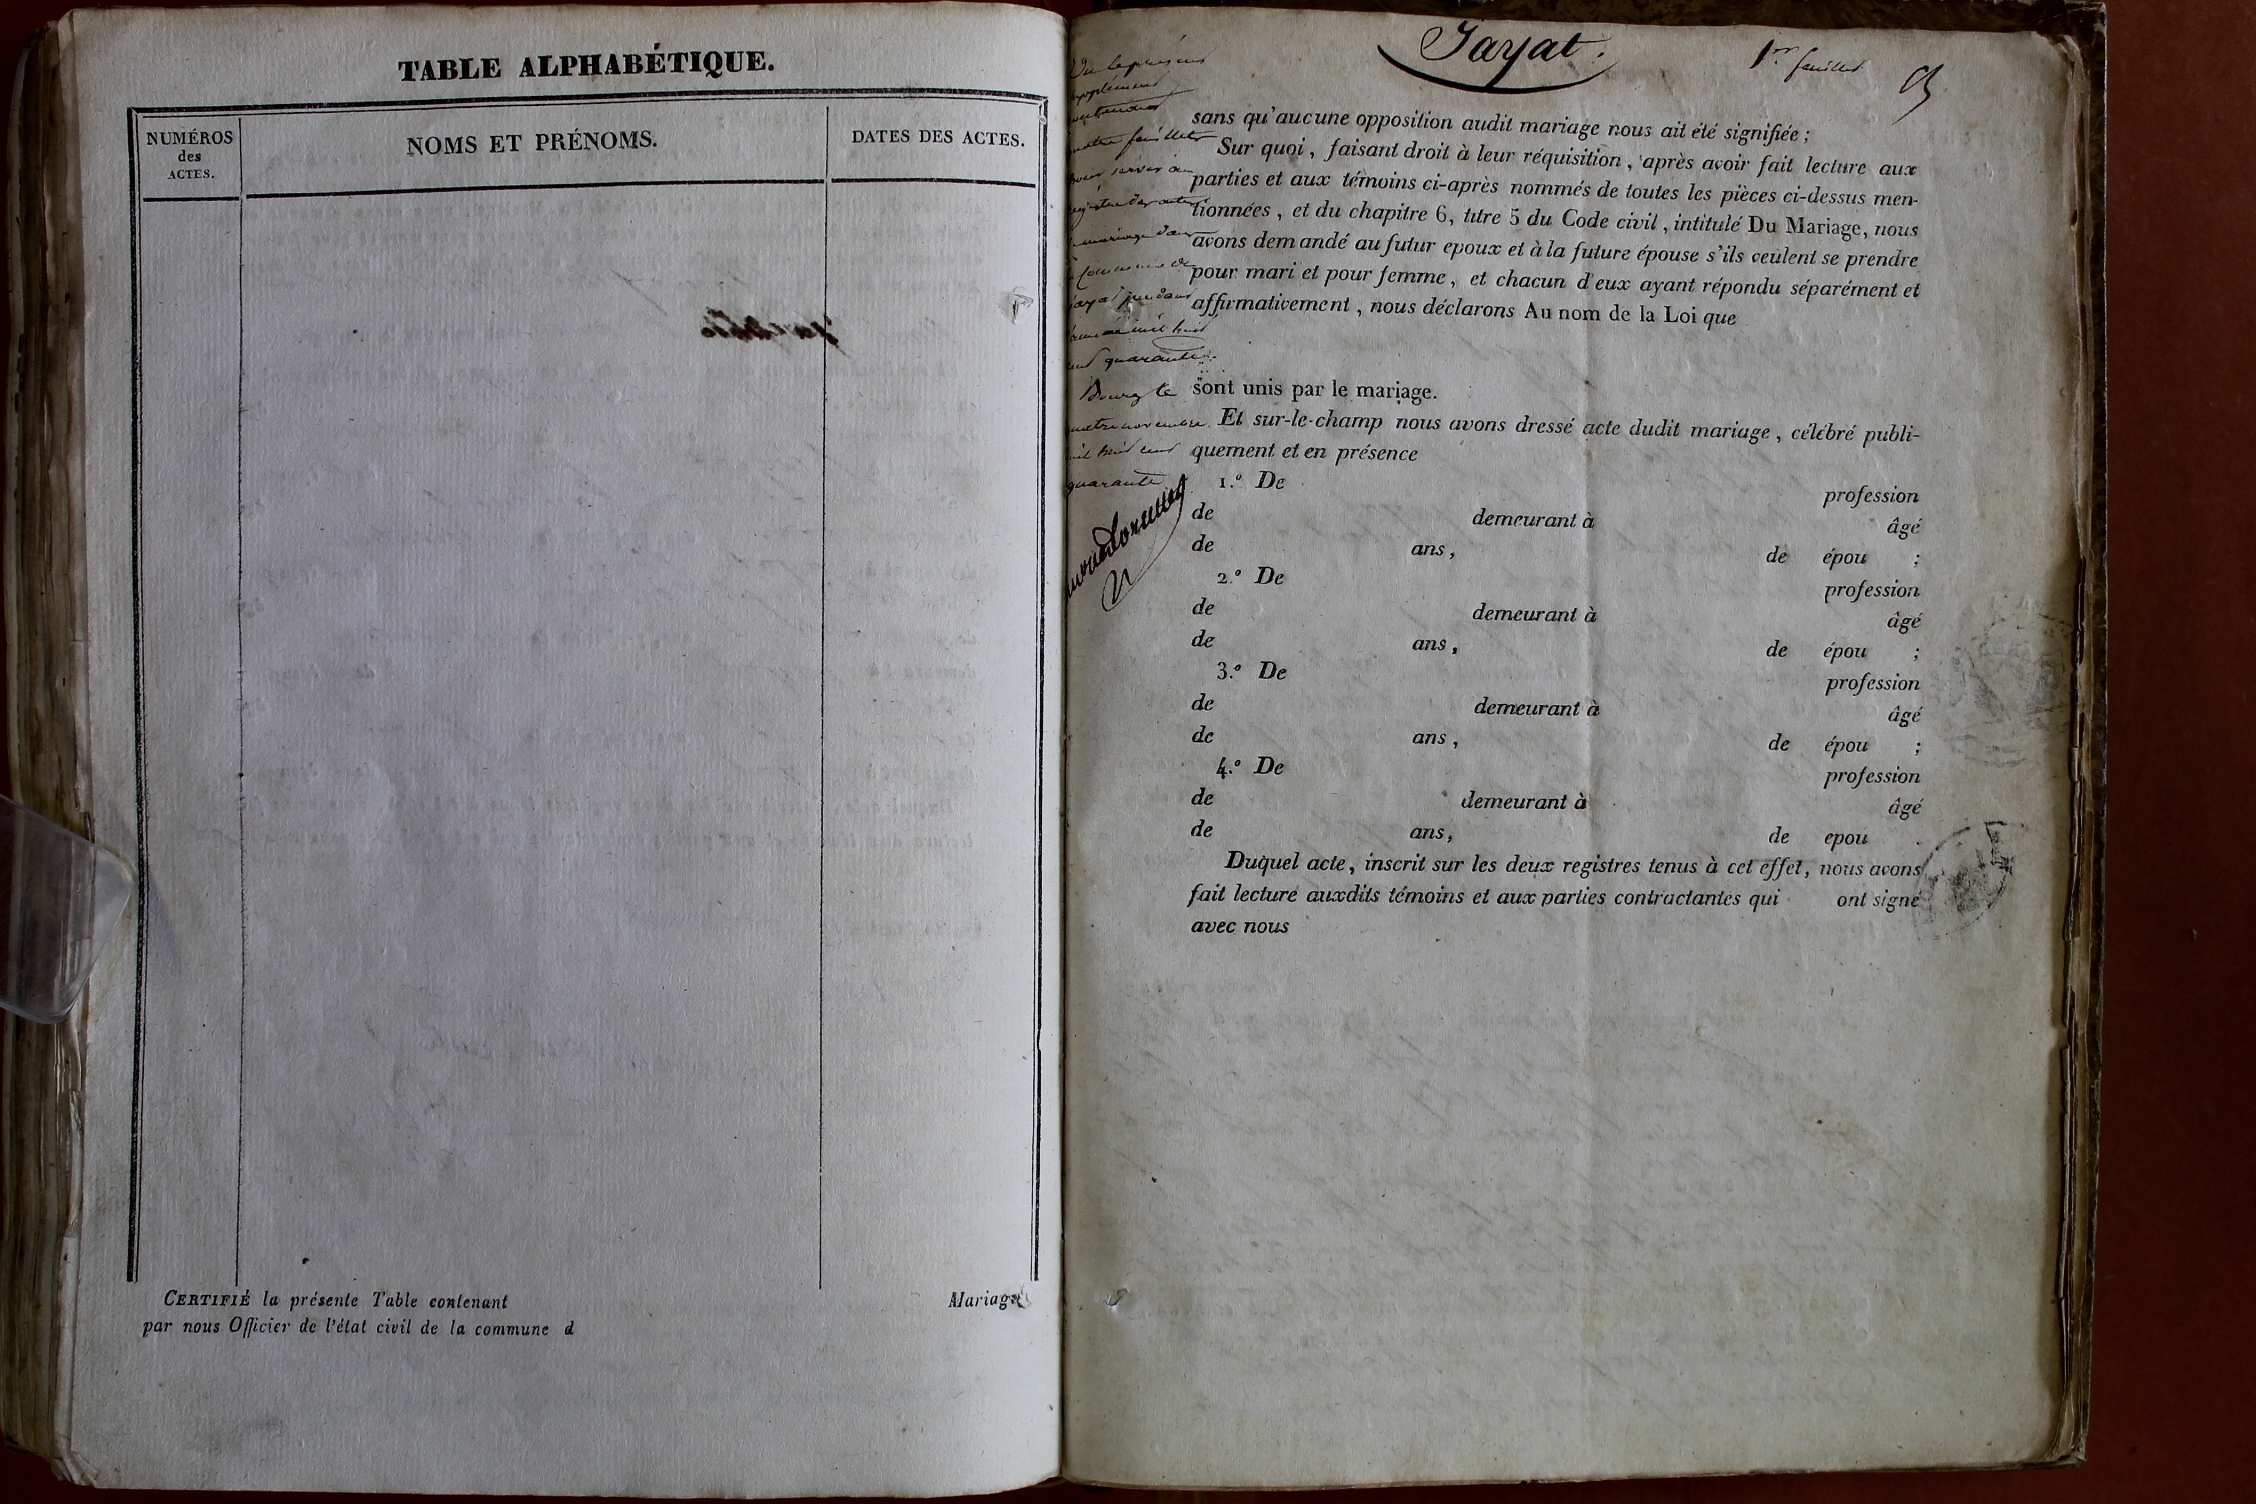 TABLE ALPHABÉTIQUE.
NUMÉROS
des
ACTES.
NOMS ET PRÉNOMS.
DATES DES ACTES.
CERTIFIÉ la présente Table contenant Mariages
par nous Officier de l'état civil de la commune d
Jayat.
1er feuillet
Vu le présent
supplément
contenant
quatre feuillets
pour servir au
registre des actes
de mariage dans
la commune de
Jayat pendant
l'année mil huit
cent quarante.
Bourg le
quatre novembre
mil huit cent
quarante
sans qu'aucune opposition audit mariage nous ait été signifiée ;
Sur quoi, faisant droit à leur réquisition, après avoir fait lecture aux
parties et aux témoins ci-après nommés de toutes les pièces ci-dessus men-
tionnées, et du chapitre 6, titre 5 du Code civil, intitulé Du Mariage, nous
avons demandé au futur epoux et à la future épouse s'ils veulent se prendre
pour mari et pour femme, et chacun d'eux ayant répondu séparément et
affirmativement, nous déclarons Au nom de la Loi que
sont unis par le mariage.
Et sur-le-champ nous avons dressé acte dudit mariage, célébré publi-
quement et en présence
1.° De profession
de demeurant à âgé
de ans, de épou ;
2.° De profession
de demeurant à âgé
de ans, de épou ;
3.° De profession
de demeurant à âgé
de ans, de épou ;
4.° De profession
de demeurant à âgé
de ans, de epou .
Duquel acte, inscrit sur les deux registres tenus à cet effet, nous avons
fait lecture auxdits témoins et aux parties contractantes qui ont signé
avec nous